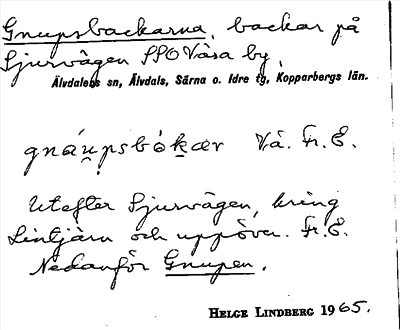 Gnupsbackarna, backar på
Sjurvägen SSO Våsa by,
Älvdalens sn, Älvdals, Särna o. Idre tg, Kopparbergs län.
gnáu̯psbòkær Vå. Fr. E.
Utefter Sjurvägen, kring
Lintjärn och uppöver. Fr. E.
Nedanför Gnupen.
HELGE LINDBERG 1965.